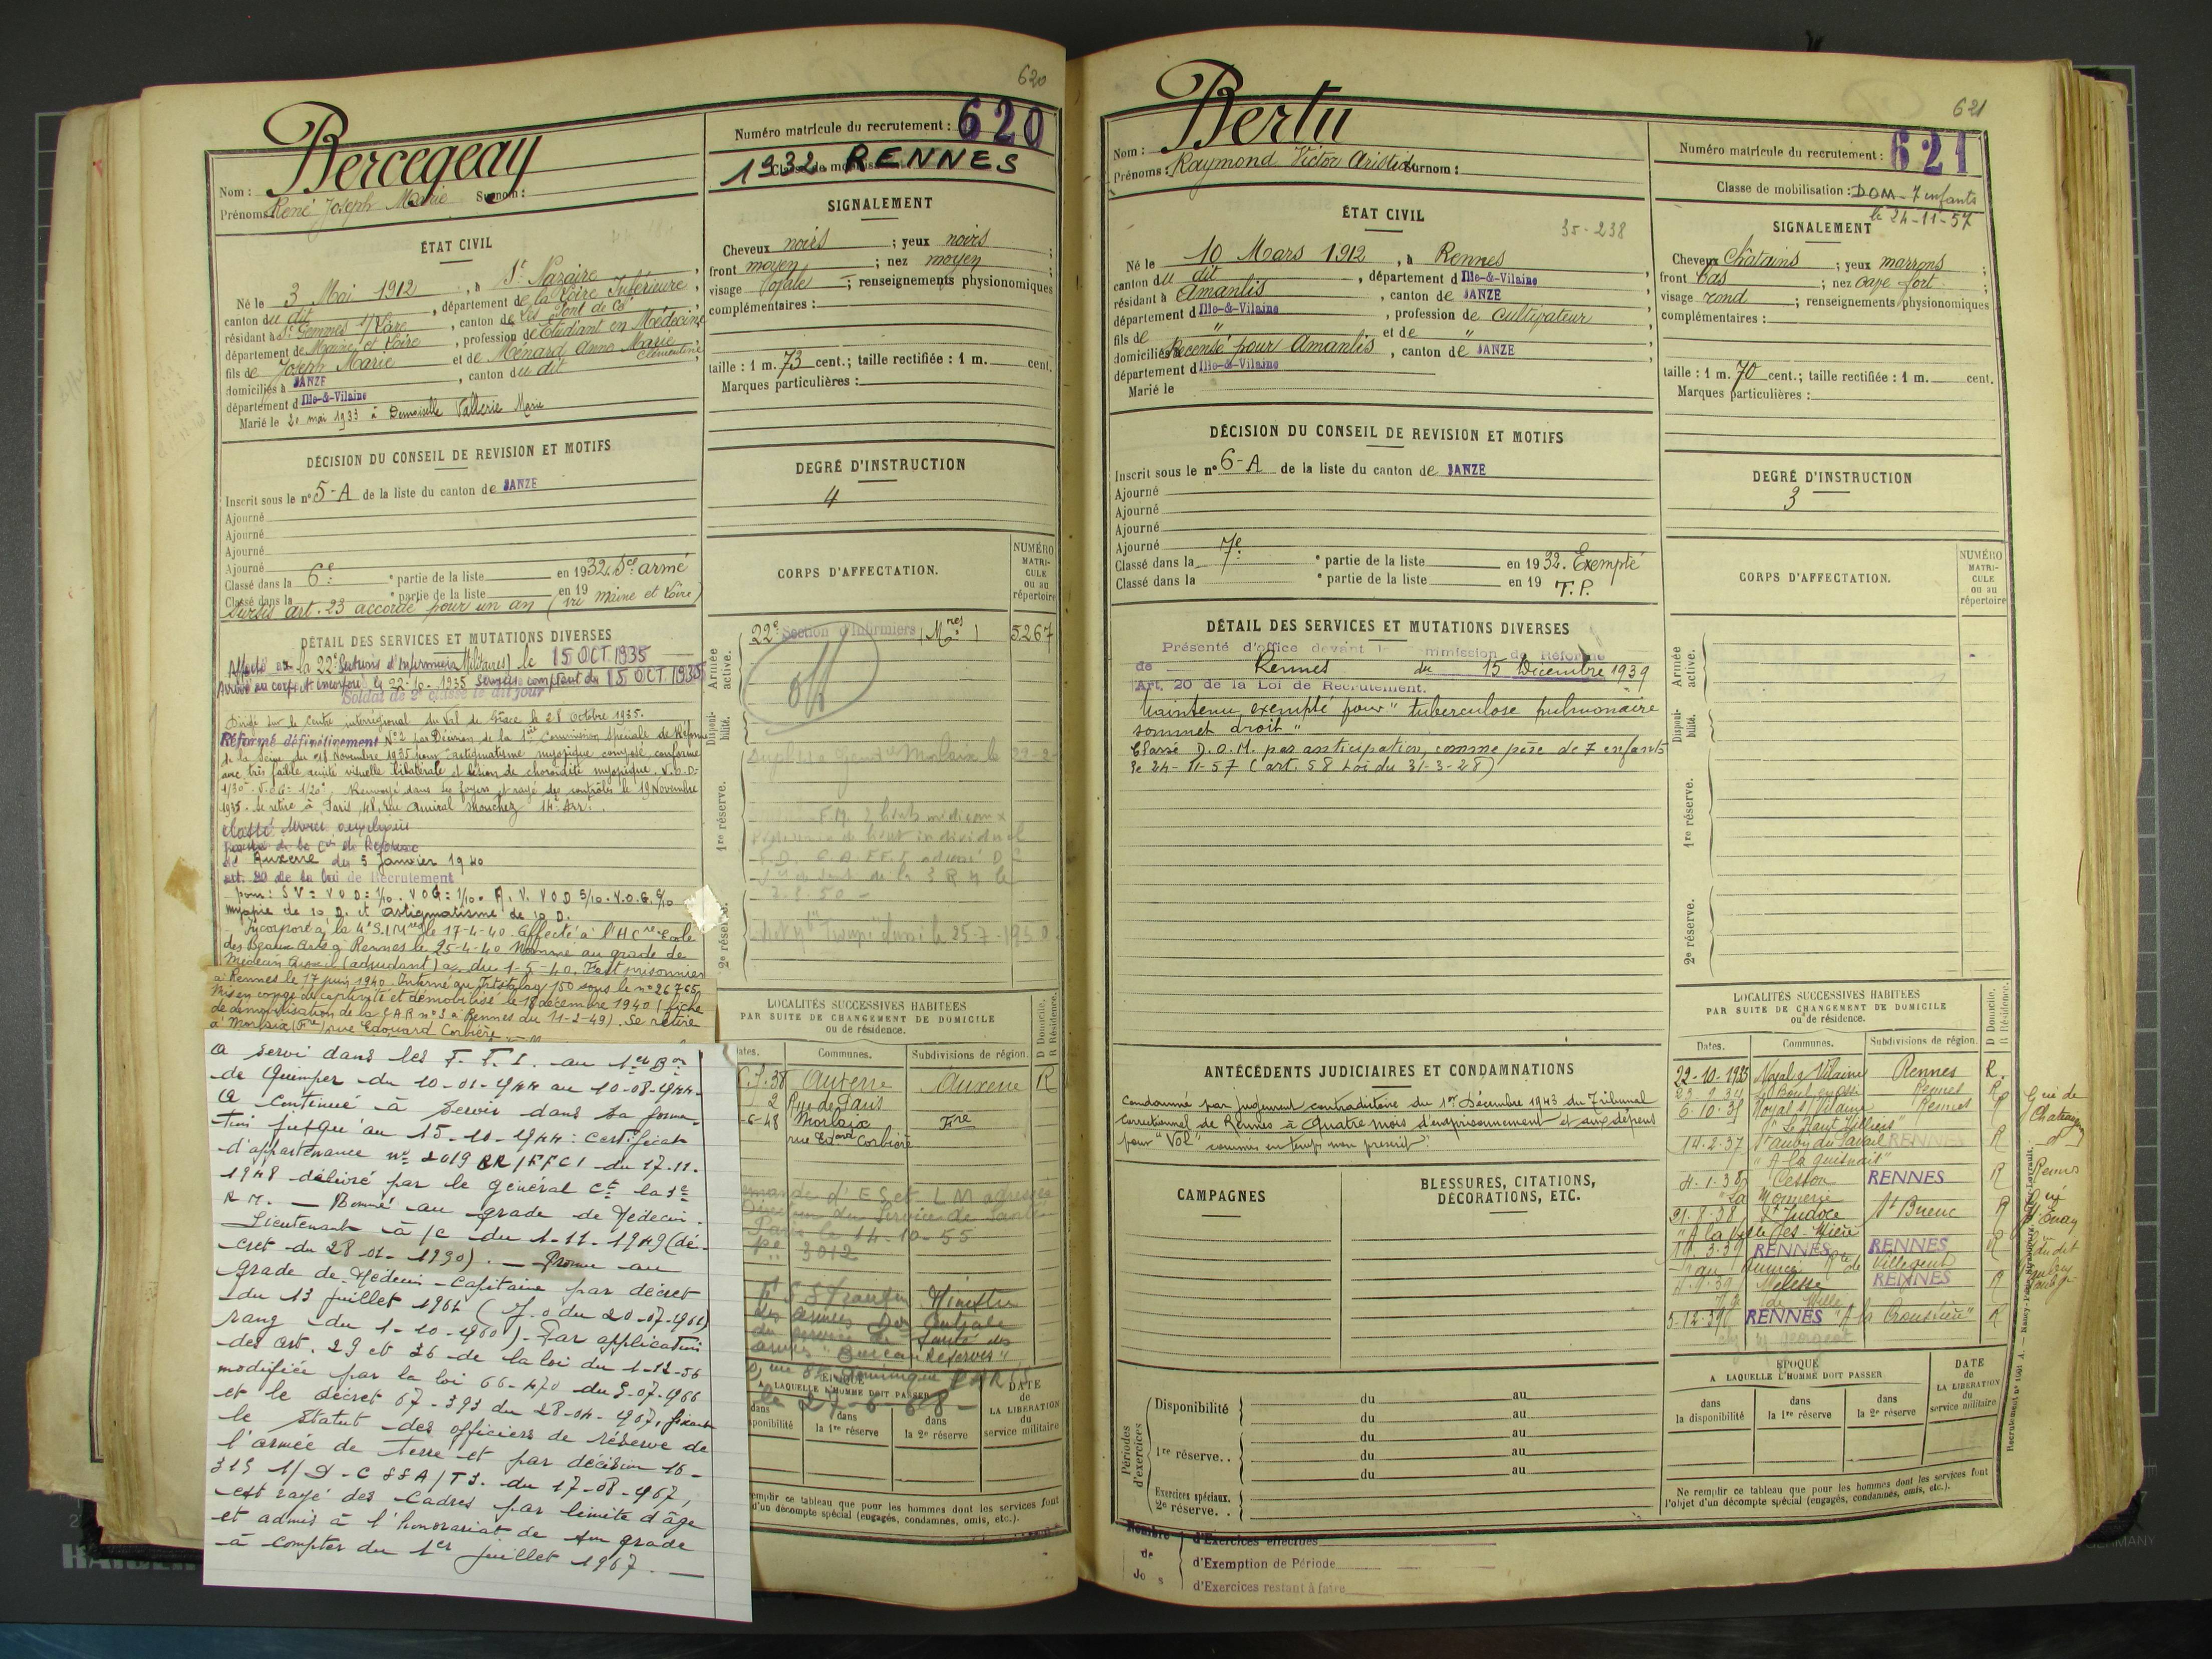 620
Bercegeay
Nom :
Prénoms : René Joseph Marie Surnom :
Numéro matricule du recrutement : 620
1932 RENNES
Classe de mobilisation
ÉTAT CIVIL
Né le 3 Mai 1912, à St Nazaire,
canton du dit, département de la Loire Inférieure,
résidant à St Gemmes s/Loire, canton de Les Pont de Cé
département de Maine et Loire, profession de Etudiant en Médecine
fils de Joseph Marie et de Ménard Anna Marie Clémentine
domiciliés à JANZE, canton du dit
département d Ille-&-Vilaine
Marié le 20 mai 1933 à Demoiselle Vallerie Marie
SIGNALEMENT
Cheveux noirs ; yeux noirs ;
front moyen ; nez moyen ;
visage ovale ; renseignements physionomiques
complémentaires :
taille : 1 m. 73 cent.; taille rectifiée : 1 m. cent.
Marques particulières :
DÉCISION DU CONSEIL DE REVISION ET MOTIFS
Inscrit sous le n° 5-A de la liste du canton de JANZE
Ajourné
Ajourné
Ajourné
Ajourné
Classé dans la 6e partie de la liste en 1932. Sce armé
Classé dans la partie de la liste en 19
Sursis art. 23 accordé pour un an (Maine et Loire)
DEGRÉ D'INSTRUCTION
4
CORPS D'AFFECTATION.
NUMÉRO MATRICULE ou au répertoire
22e Section d'Infirmiers (Mres) 5267
off
Armée active.
Disponibilité.
1re réserve.
2e réserve.
DÉTAIL DES SERVICES ET MUTATIONS DIVERSES
Affecté à la 22e Section d'Infirmiers Militaires le 15 OCT 1935
Arrivé au corps et incorporé le 22-10-1935 Services comptant du 15 OCT 1935
Soldat de 2e classe le dit jour
Dirigé sur le Centre interrégional du Val de Grâce le 28 octobre 1935.
Réformé définitivement N°2 par Décision de la 1ère Commission spéciale de Réforme
de la Seine du 18 Novembre 1935 pour "astigmatisme myopique composé conforme
avec très faible acuité visuelle bilatérale et lésion de choroïdité myopique. V.O.D=
1/30e. V.O.G= 1/20e. Renvoyé dans ses foyers et rayé des contrôles le 19 Novembre
1935. Se retire à Paris, 48, rue Amiral Mouchez 14e Arr.
Classé service auxiliaire
de Auxerre du 5 Janvier 1940
art. 20 de la loi de Recrutement
pour : S V = V O D = 1/10. V O G = 1/10. A. V. V O D 5/10. V.O.G. 5/10
myopie de 10 D. et astigmatisme de 10 D.
Incorporé à la 4e S.I.M. le 17-4-40. Affecté à l'H Cre Ecole
des Beaux Arts à Rennes le 25-4-40 Nommé au grade de
Médecin auxil (adjudant) à c. du 1-5-40. Fait prisonnier
à Rennes le 17 juin 1940. Interné au Frtstalag 150 sous le n° 26765
Mis en congé de captivité et démobilisé le 18 décembre 1940 (fiche
de démobilisation de la C.A.R n°3 à Rennes du 11-2-49). Se retire
à Morlaix (Fre) rue Edouard Corbière
a servi dans les F.F.I. au 1er Bon
de Quimper du 10-01-1944 au 10-08-1944.
a continué à servir dans sa forma-
tion jusqu'au 15-10-1944 : certificat
d'appartenance n° 2019 RR/FFCI du 17.11.
1948 délivré par le général Ct la 3e
R M. — Nommé au grade de Médecin.
Lieutenant à/c du 1-11-1949 (dé-
cret du 28-01-1950). — Promu au
grade de Médecin-Capitaine par décret
du 13 juillet 1961 (J.O du 20-07-1961)
rang du 1-10-1960). Par application
des art. 29 et 36 de la loi du 1-12-56
modifiée par la loi 66-470 du 5-07-1966
et le décret 67-393 du 28-04-1967, fixant
le statut des officiers de réserve de
l'armée de terre et par décision 16-
315 1/D-C SSA/TS. du 17-08-1967,
est rayé des Cadres par limite d'âge
et admis à l'honorariat de son grade
à compter du 1er juillet 1967. —
LOCALITÉS SUCCESSIVES HABITÉES
PAR SUITE DE CHANGEMENT DE DOMICILE
ou de résidence.
Communes. Subdivisions de région. D Domicile. R Résidence.
38 Auxerre Auxerre R
2 Rue de Paris
-6-48 Morlaix Fre
rue Edard Corbière
d'ES et L M
Direction du Service de Santé
Paris le 14-10-55
3012
Ministre
des armées Don Centrale
du service de Santé des
armées "Bureau Réserves"
PARIS
le 27-6-68
ÉPOQUE
A LAQUELLE L'HOMME DOIT PASSER
dans la 1re réserve
dans la 2e réserve
DATE de LA LIBÉRATION du service militaire
remplir ce tableau que pour les hommes dont les services font
d'un décompte spécial (engagés, condamnés, omis, etc.).
621
Bertu
Nom :
Prénoms : Raymond Victor Aristide Surnom :
Numéro matricule du recrutement : 621
Classe de mobilisation : DOM - 7 enfants
le 24-11-57
ÉTAT CIVIL
35-238
Né le 10 Mars 1912, à Rennes
canton du dit, département d Ille-&-Vilaine,
résidant à Amanlis, canton de JANZE
département d Ille-&-Vilaine, profession de Cultivateur,
fils de " et de "
domiciliés à Recensé pour Amanlis, canton de JANZE
département d Ille-&-Vilaine
Marié le
SIGNALEMENT
Cheveux Châtains ; yeux marrons ;
front bas ; nez cave fort ;
visage rond ; renseignements physionomiques
complémentaires :
taille : 1 m. 70 cent.; taille rectifiée : 1 m. cent.
Marques particulières :
DÉCISION DU CONSEIL DE REVISION ET MOTIFS
Inscrit sous le n° 6-A de la liste du canton de JANZE
Ajourné
Ajourné
Ajourné
Ajourné
Classé dans la 7e partie de la liste en 1932. Exempté
Classé dans la partie de la liste en 19 T.P.
DEGRÉ D'INSTRUCTION
3
CORPS D'AFFECTATION.
NUMÉRO MATRICULE ou au répertoire
Armée active.
Disponibilité.
1re réserve.
2e réserve.
DÉTAIL DES SERVICES ET MUTATIONS DIVERSES
Présenté d'office devant la Commission de Réforme
de Rennes du 15 Décembre 1939
Art. 20 de la Loi de Recrutement.
Maintenu exempté pour "tuberculose pulmonaire
sommet droit"
Classé D.O.M. par anticipation, comme père de 7 enfants
le 24-11-57 (art. 58 Loi du 31-3-28)
ANTÉCÉDENTS JUDICIAIRES ET CONDAMNATIONS
Condamné par jugement contradictoire du 1er Décembre 1943 du Tribunal
Correctionnel de Rennes à quatre mois d'emprisonnement et aux dépens
pour "Vol" commis en temps non prescrit.
CAMPAGNES
BLESSURES, CITATIONS, DÉCORATIONS, ETC.
Périodes d'exercices
Disponibilité du au
du au
1re réserve.. du au
du au
du au
Exercices spéciaux.
2e réserve. .
Nombre de Jours
d'Exercices effectués
d'Exemption de Période
d'Exercices restant à faire
LOCALITÉS SUCCESSIVES HABITÉES
PAR SUITE DE CHANGEMENT DE DOMICILE
ou de résidence.
Dates. Communes. Subdivisions de région. D Domicile. R Résidence.
22-10-1935 Noyal s/ Vilaine Rennes R.
Rennes R
6.10.35 Noyal s/ Vilaine Rennes R
"Le Haut Villiers"
14.2.37 St Aubin du Pavail RENNES R
4.1.38 Cesson RENNES R
21.8.38 St Judoce St Brieuc R
3.39 RENNES RENNES R
4.9.39 Melesse RENNES R
5-12-39 RENNES "A la Croustière" R
ÉPOQUE
A LAQUELLE L'HOMME DOIT PASSER
dans la disponibilité
dans la 1re réserve
dans la 2e réserve
DATE de LA LIBÉRATION du service militaire
Ne remplir ce tableau que pour les hommes dont les services font
l'objet d'un décompte spécial (engagés, condamnés, omis, etc.).
GERMANY